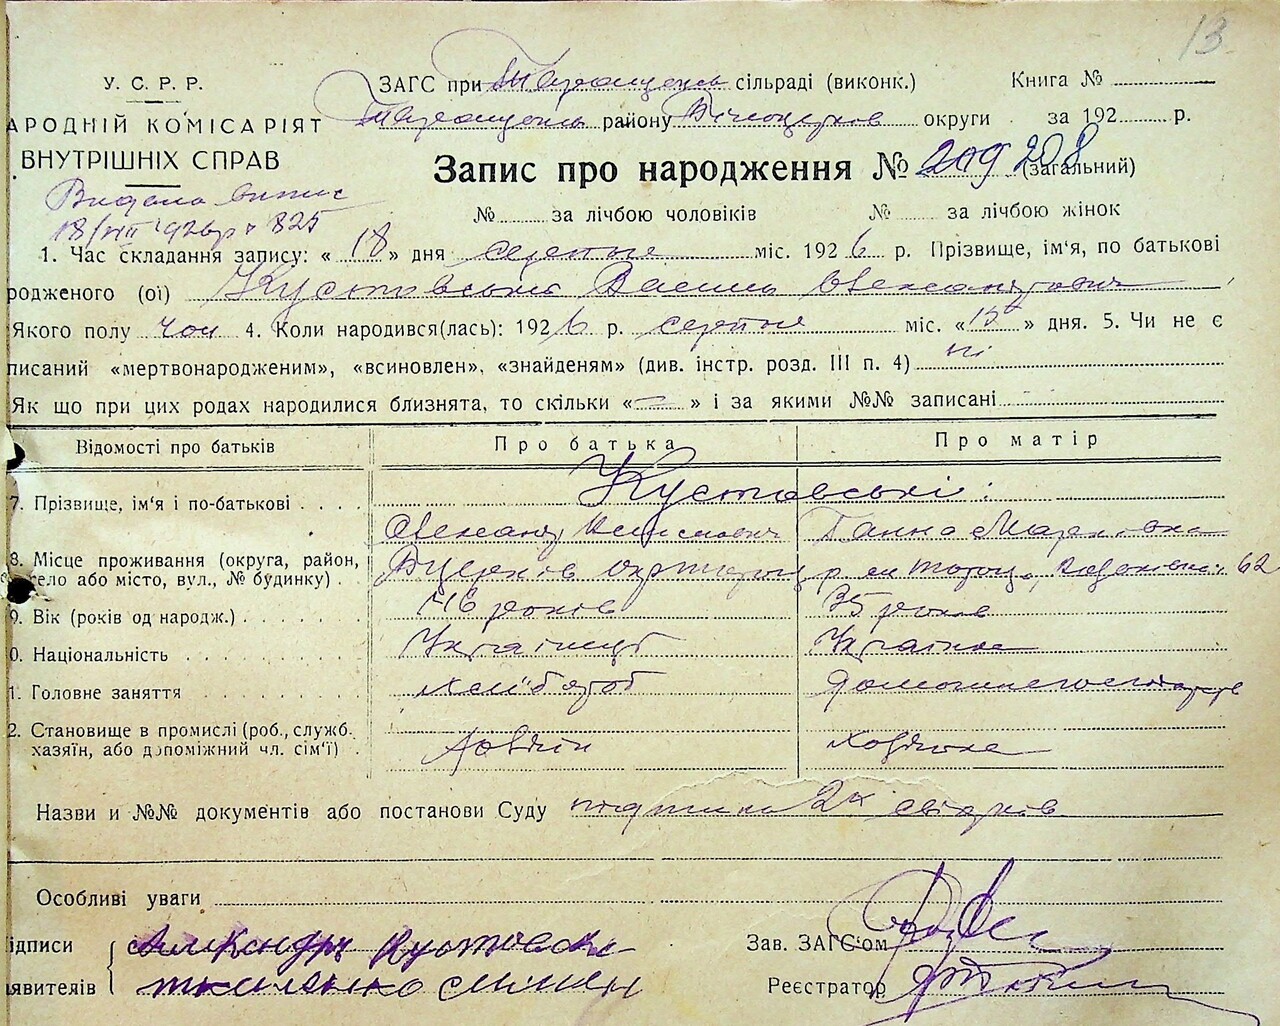 13
У. С. Р. Р.
ЗАГС при Таращанськ сільраді (виконк.) Книга №
АРОДНІЙ КОМІСАРІЯТ
Таращанськ району Білоцерков округи за 192 р.
ВНУТРІШНІХ СПРАВ
Запис про народження № 209 208 (загальний)
Видано витяг
18/VIII 1926 р. 825
№ за лічбою чоловіків № за лічбою жінок
1. Час складання запису: « 18 » дня серпня міс. 1926 р. Прізвище, ім'я, по батькові
родженого (ої) Кустовський Василь Олександрович
Якого полу чол 4. Коли народився(лась): 1926 р. серпня міс. « 15 » дня. 5. Чи не є
писаний «мертвонародженим», «всиновлен», «знайденям» (див. інстр. розд. III п. 4) ні
Як що при цих родах народилися близнята, то скільки « — » і за якими №№ записані
Відомості про батьків Про батька Про матір
7. Прізвище, ім'я і по-батькові Кустовські
Олександр Ганна Марківна
8. Місце проживання (округа, район,
село або місто, вул., № будинку) 62
9. Вік (років од народж.) 46 років 35 років
0. Національність Українець Українка
1. Головне заняття хлібороб
2. Становище в промислі (роб., служб.
хазяїн, або допоміжний чл. сім'ї) Хазяїн
Назви и №№ документів або постанови Суду 2х свідків
Особливі уваги
ідписи Александр Кустовски
Зав. ЗАГС'ом
аявителів
Реєстратор